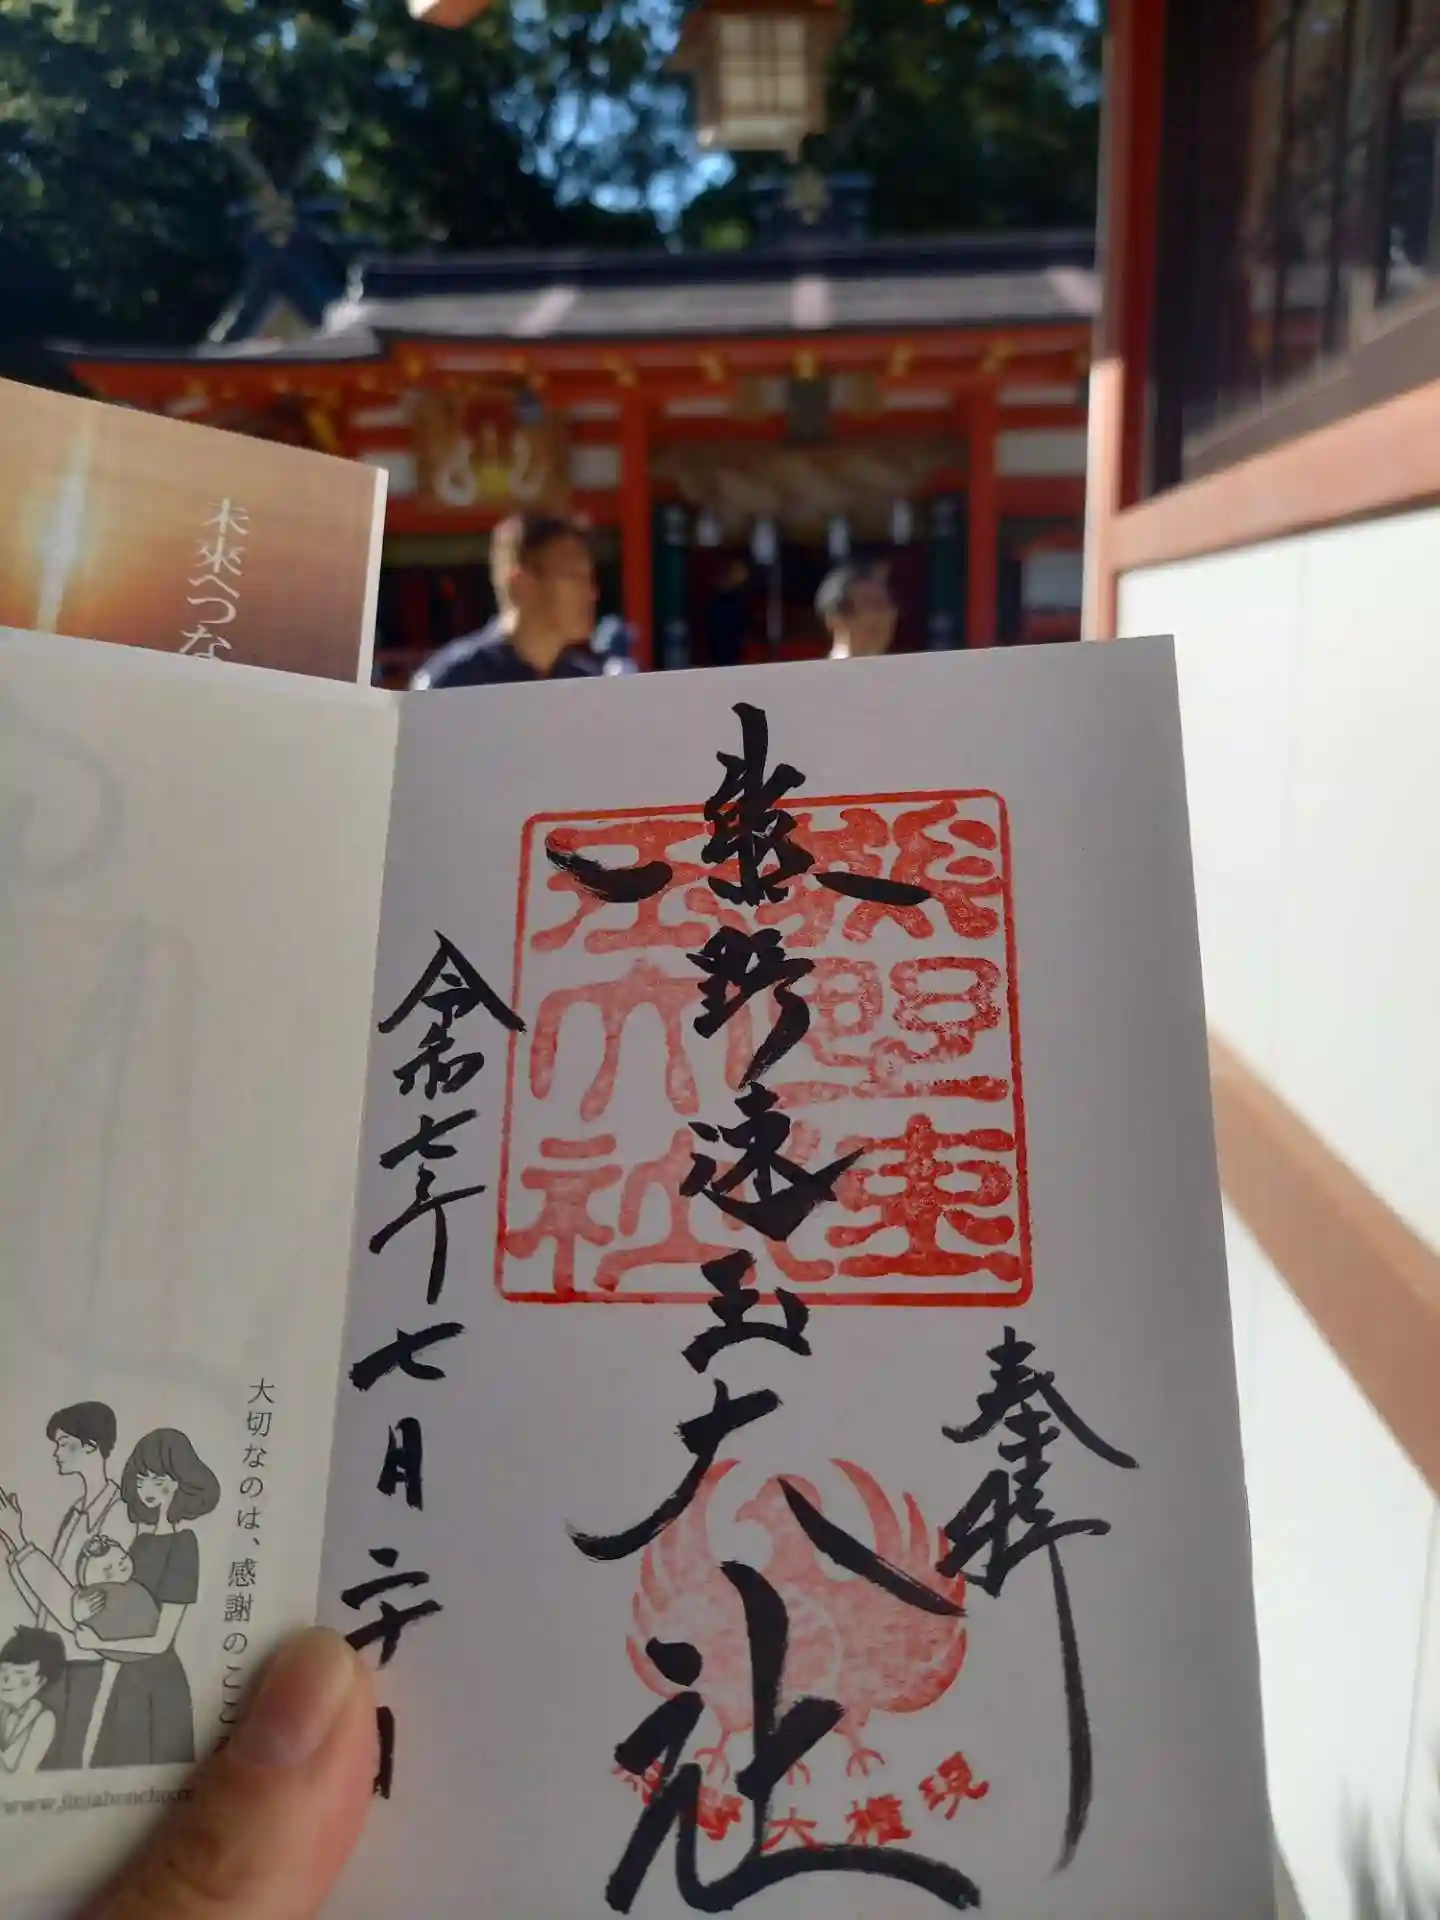 奉拝
熊野速玉大社
令和七年七月二十日
熊野速
玉大社
熊野大権現
未来へつな
大切なのは、感謝のここ
www.jinjahoncho.or